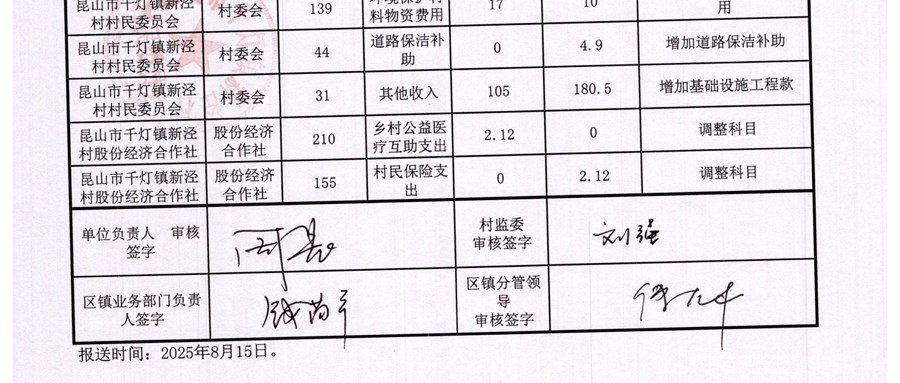 昆山市千灯镇新泾
村村民委员会
村委会
139
料物资费用
17
10
用
昆山市千灯镇新泾
村村民委员会
村委会
44
道路保洁补
助
0
4.9
增加道路保洁补助
昆山市千灯镇新泾
村村民委员会
村委会
31
其他收入
105
180.5
增加基础设施工程款
昆山市千灯镇新泾
村股份经济合作社
股份经济
合作社
210
乡村公益医
疗互助支出
2.12
0
调整科目
昆山市千灯镇新泾
村股份经济合作社
股份经济
合作社
155
村民保险支
出
0
2.12
调整科目
单位负责人 审核
签字
村监委
审核签字
刘强
区镇业务部门负责
人签字
区镇分管领
导
审核签字
报送时间：2025年8月15日。